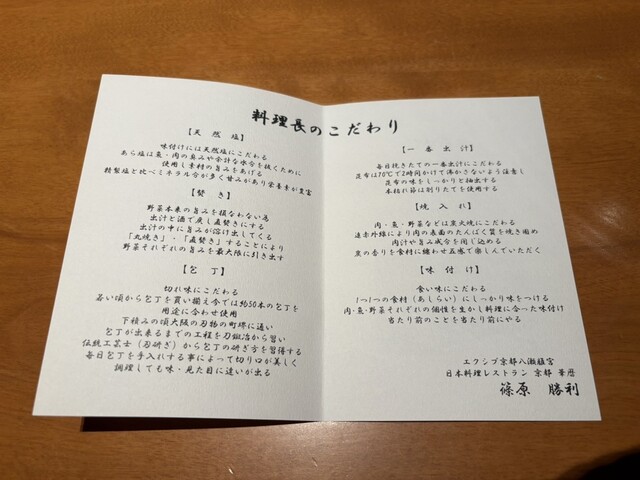 料理長のこだわり
【天然塩】
味付けには天然塩にこだわる
あら塩は魚・肉の臭みや余計な水分を抜くために
使用し素材の旨みをあげる
精製塩と比べミネラル分が多く甘みがあり栄養素が豊富
【焚き】
野菜本来の旨みを損なわない為
出汁と酒で戻し直焚きにする
出汁の中に旨みが溶け出してくる
「丸焼き」・「直焚き」することにより
野菜それぞれの旨みを最大限に引き出す
【包丁】
切れ味にこだわる
若い頃から包丁を買い揃え今では約50本の包丁を
用途に合わせ使用
下積みの頃大阪の刃物の町堺に通い
包丁が出来るまでの工程を刃鍛冶から習い
伝統工芸士(刃研ぎ)から包丁の研ぎ方を習得する
毎日包丁を手入れする事によって切り口が美しく
調理しても味・見た目に違いが出る
【一番出汁】
毎日挽きたての一番出汁にこだわる
昆布は70℃で2時間かけて沸かさないよう注意し
昆布の味をしっかりと抽出する
本枯れ節は削りたてを使用する
【焼入れ】
肉・魚・野菜などは炭火焼にこだわる
遠赤外線により肉の表面のたんぱく質を焼き固め
肉汁や旨み成分を閉じ込める
炭の香りを食材に纏わせ五感で楽しんでいただく
【味付け】
食い味にこだわる
1つ1つの食材(あしらい)にしっかり味をつける
肉・魚・野菜それぞれの個性を生かし料理に合った味付け
当たり前のことを当たり前にやる
エクシブ京都八瀬離宮
日本料理レストラン 京都 華暦
篠原 勝利